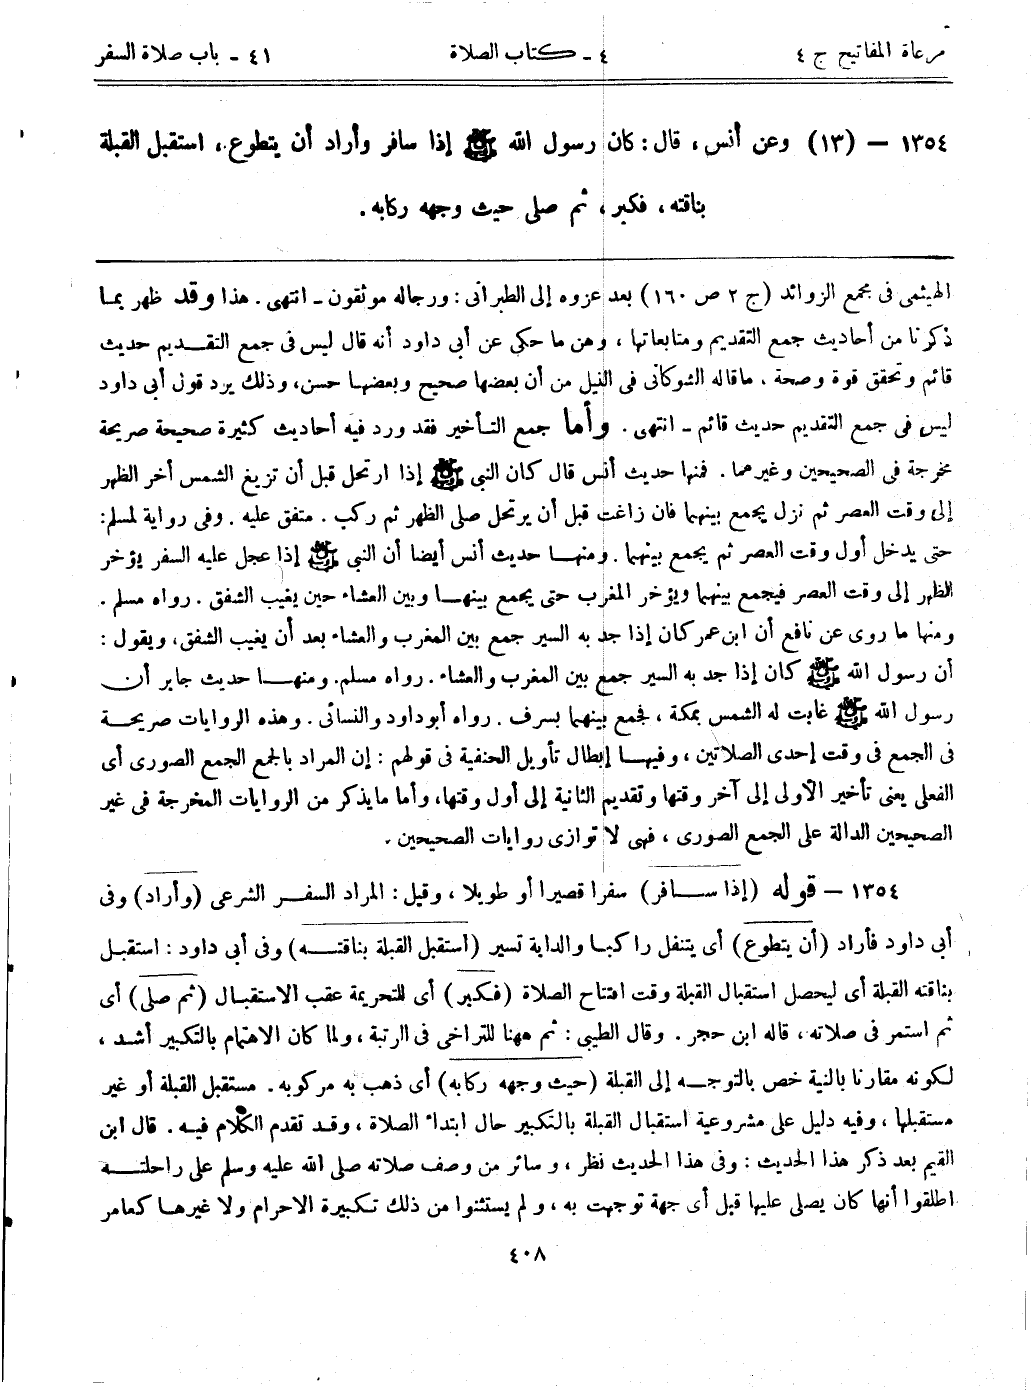 مرعاة المفاتيح ج ٤ ٤ ـ كتاب الصلاة ٤١ ـ باب صلاة السفر
١٣٥٤ — (١٣) وعن أنس، قال: كان رسول الله ﷺ إذا سافر وأراد أن يتطوع، استقبل القبلة
بناقته، فكبر، ثم صلى حيث وجهه ركابه.
الهيثمى فى مجمع الزوائد (ج ٢ ص ١٦٠) بعد عزوه إلى الطبرانى: ورجاله موثقون ـ انتهى. هذا وقد ظهر بما
ذكرنا من أحاديث جمع التقديم ومتابعاتها، وهن ما حكى عن أبى داود أنه قال ليس فى جمع التقـديم حديث
قائم وتحقق قوة وصحة، ماقاله الشوكانى فى النيل من أن بعضها صحيح وبعضها حسن، وذلك يرد قول أبى داود
ليس فى جمع التقديم حديث قائم ـ انتهى. وأما جمع التأخير فقد ورد فيه أحاديث كثيرة صحيحة صريحة
مخرجة فى الصحيحين وغيرهما. فمنها حديث أنس قال كان النبى ﷺ إذا ارتحل قبل أن تزيغ الشمس أخر الظهر
إلى وقت العصر ثم نزل يجمع بينهما فان زاغت قبل أن يرتحل صلى الظهر ثم ركب. متفق عليه. وفى رواية لمسلم:
حتى يدخل أول وقت العصر ثم يجمع بينهما. ومنهـا حديث أنس أيضا أن النبى ﷺ إذا عجل عليه السفر يؤخر
الظهر إلى وقت العصر فيجمع بينهما ويؤخر المغرب حتى يجمع بينهـا وبين العشاء حين يغيب الشفق. رواه مسلم.
ومنها ما روى عن نافع أن ابن عمر كان إذا جد به السير جمع بين المغرب والعشاء بعد أن يغيب الشفق، ويقول:
أن رسول الله ﷺ كان إذا جد به السير جمع بين المغرب والعشاء. رواه مسلم. ومنهـا حديث جابر أن
رسول الله ﷺ غابت له الشمس بمكة، فجمع بينهما بسرف. رواه أبو داود والنسائى. وهذه الروايات صريحـة
فى الجمع فى وقت إحدى الصلاتين، وفيهـا إبطال تأويل الحنفية فى قولهم: إن المراد بالجمع الجمع الصورى أى
الفعلى يعنى تأخير الأولى إلى آخر وقتها وتقديم الثانية إلى أول وقتها، وأما مايذكر من الروايات المخرجة فى غير
الصحيحين الدالة على الجمع الصورى، فهى لا توازى روايات الصحيحين.
١٣٥٤ — قوله (إذا سـافر) سفرا قصيرا أو طويلا، وقيل: المراد السفـر الشرعى (وأراد) وفى
أبى داود فأراد (أن يتطوع) أى يتنفل راكبـا والدابة تسير (استقبل القبلة بناقتـه) وفى أبى داود: استقبـل
بناقته القبلة أى ليحصل استقبال القبلة وقت افتتاح الصلاة (فكبر) أى للتحريمة عقب الاستقبال (ثم صلى) أى
ثم استمر فى صلاته، قاله ابن حجر. وقال الطيبى: ثم ههنا للتراخى فى الرتبة، ولما كان الاهتمام بالتكبير أشـد،
لكونه مقارنا بالنية خص بالتوجـه إلى القبلة (حيث وجهه ركابه) أى ذهب به مركوبه. مستقبل القبلة أو غير
مستقبلها، وفيه دليل على مشروعية استقبال القبلة بالتكبير حال ابتداء الصلاة، وقـد تقدم الكلام فيـه. قال ابن
القيم بعد ذكر هذا الحديث: وفى هذا الحديث نظر، وسائر من وصف صلاته صلى الله عليه وسلم على راحلتـه
اطلقوا أنها كان يصلى عليها قبل أى جهة توجهت به، ولم يستثنوا من ذلك تكبيرة الاحرام ولا غيرهـا كعامر
٤٠٨